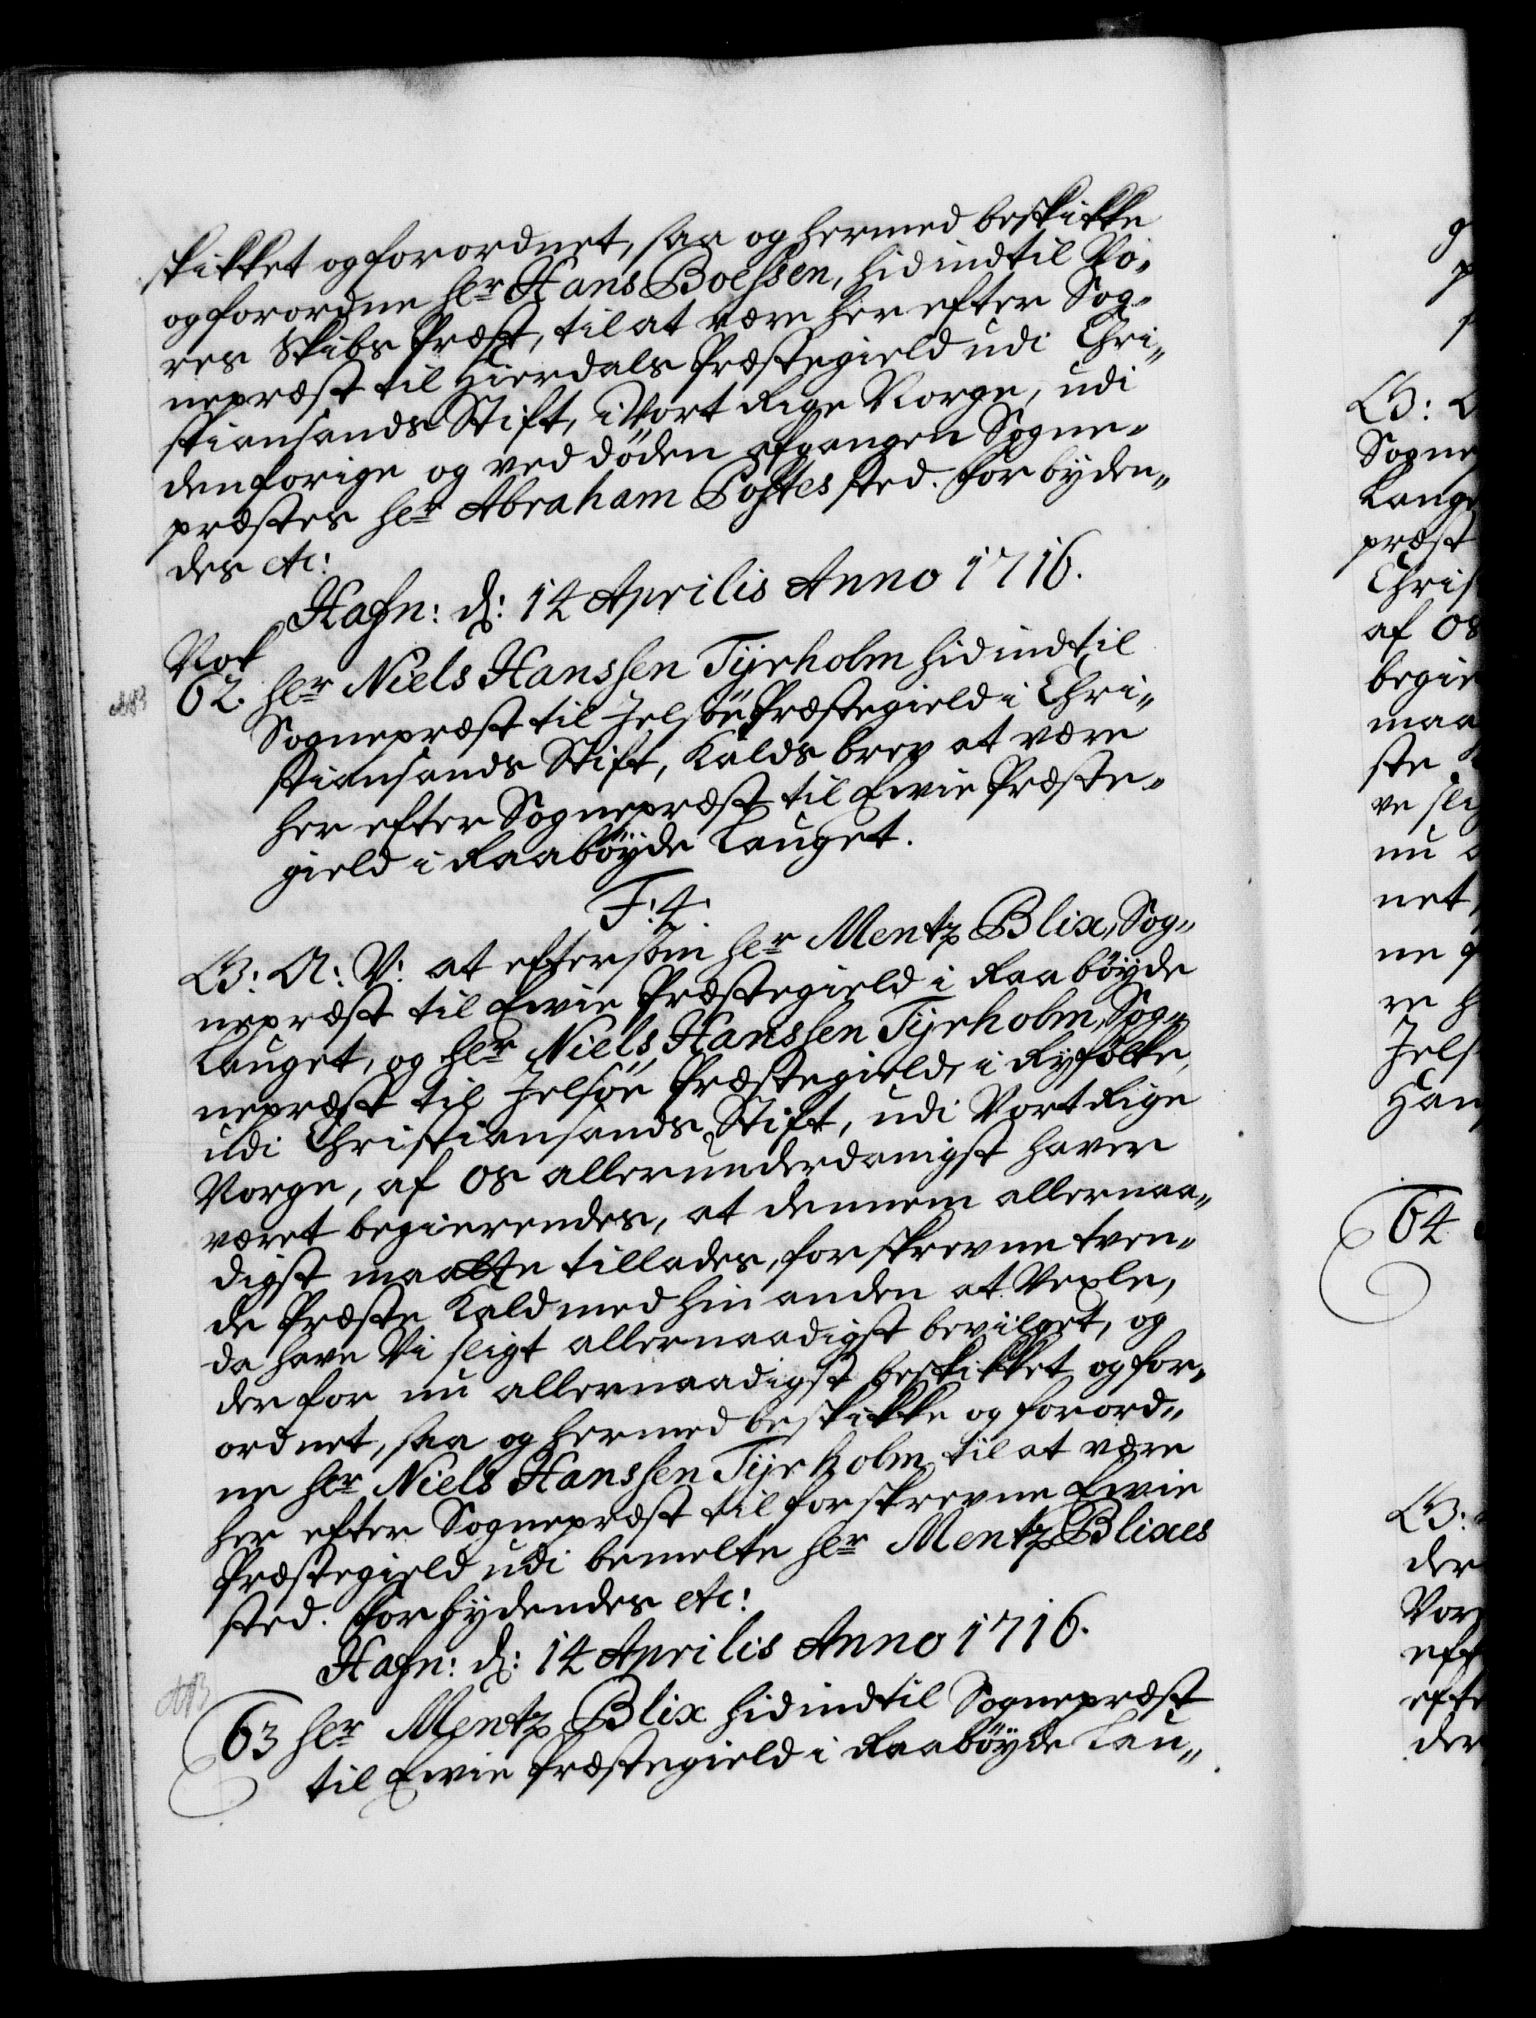 skikket og forordnet, saa og hermed beskikke
og forordne hr Hans Boessen, hid indtil Vo„
res Skibs Præst, til at være her efter Sog„
nepræst til Hierdals Præstegield udi Chri„
stiansands Stift, i Vort Rige Norge, udi
den forige og ved døden afgangen Sogne„
præstes hr Abraham Postes sted. Forbyden„
des etc:
Hafn: d: 14 Aprilis Anno 1716.
Not
62. hr Niels Hanssen Tyrholm hid indtil
Sognepræst til Jelsöe Præstegield i Chri„
stiansands Stift, Kalds brev at være
her efter Sognepræst til Ewie Præste„
gield i Raaböyde Lauget.
F: 4.
G: A: V: at eftersom hr Mentz Blix, Sog„
nepræst til Ewie Præstegield i Raabøyde
Lauget, og hr Niels Hanssen Tyrholm, Sog„
nepræst til Jelsöe Præstegield, i Ryfölke,
udi Christiansands Stift, udi Vort Rige
Norge, af os allerunderdanigst haver
været begierendes, at dennem allernaa„
digst maatte tillades, forskrevne tven„
de Præste Kald med hin anden at Vexle,
da have Vi sligt allernaadigst bevilget, og
derfor nu allernaadigst beskikket og for„
ordnet, saa og hermed beskikke og forord„
ne hr Niels Hanssen Tyrholm til at være
her efter Sognepræst til forskrevne Ewie
Præstegield udi bemelte hr Mentz Blixes
sted. Forbydendes etc:
Hafn: d: 14 Aprilis Anno 1716.
63 hr Mentz Blix hid indtil Sognepræst
til Ewie Præstegield i Raabøyde Lau„
G:
Sogne
Lauge
præst
Chris
af os
begie
maa
ste
ve sli
nu
net,
ne
re h
Jels
Han
64
G:
der
Vor
eff
efte
der